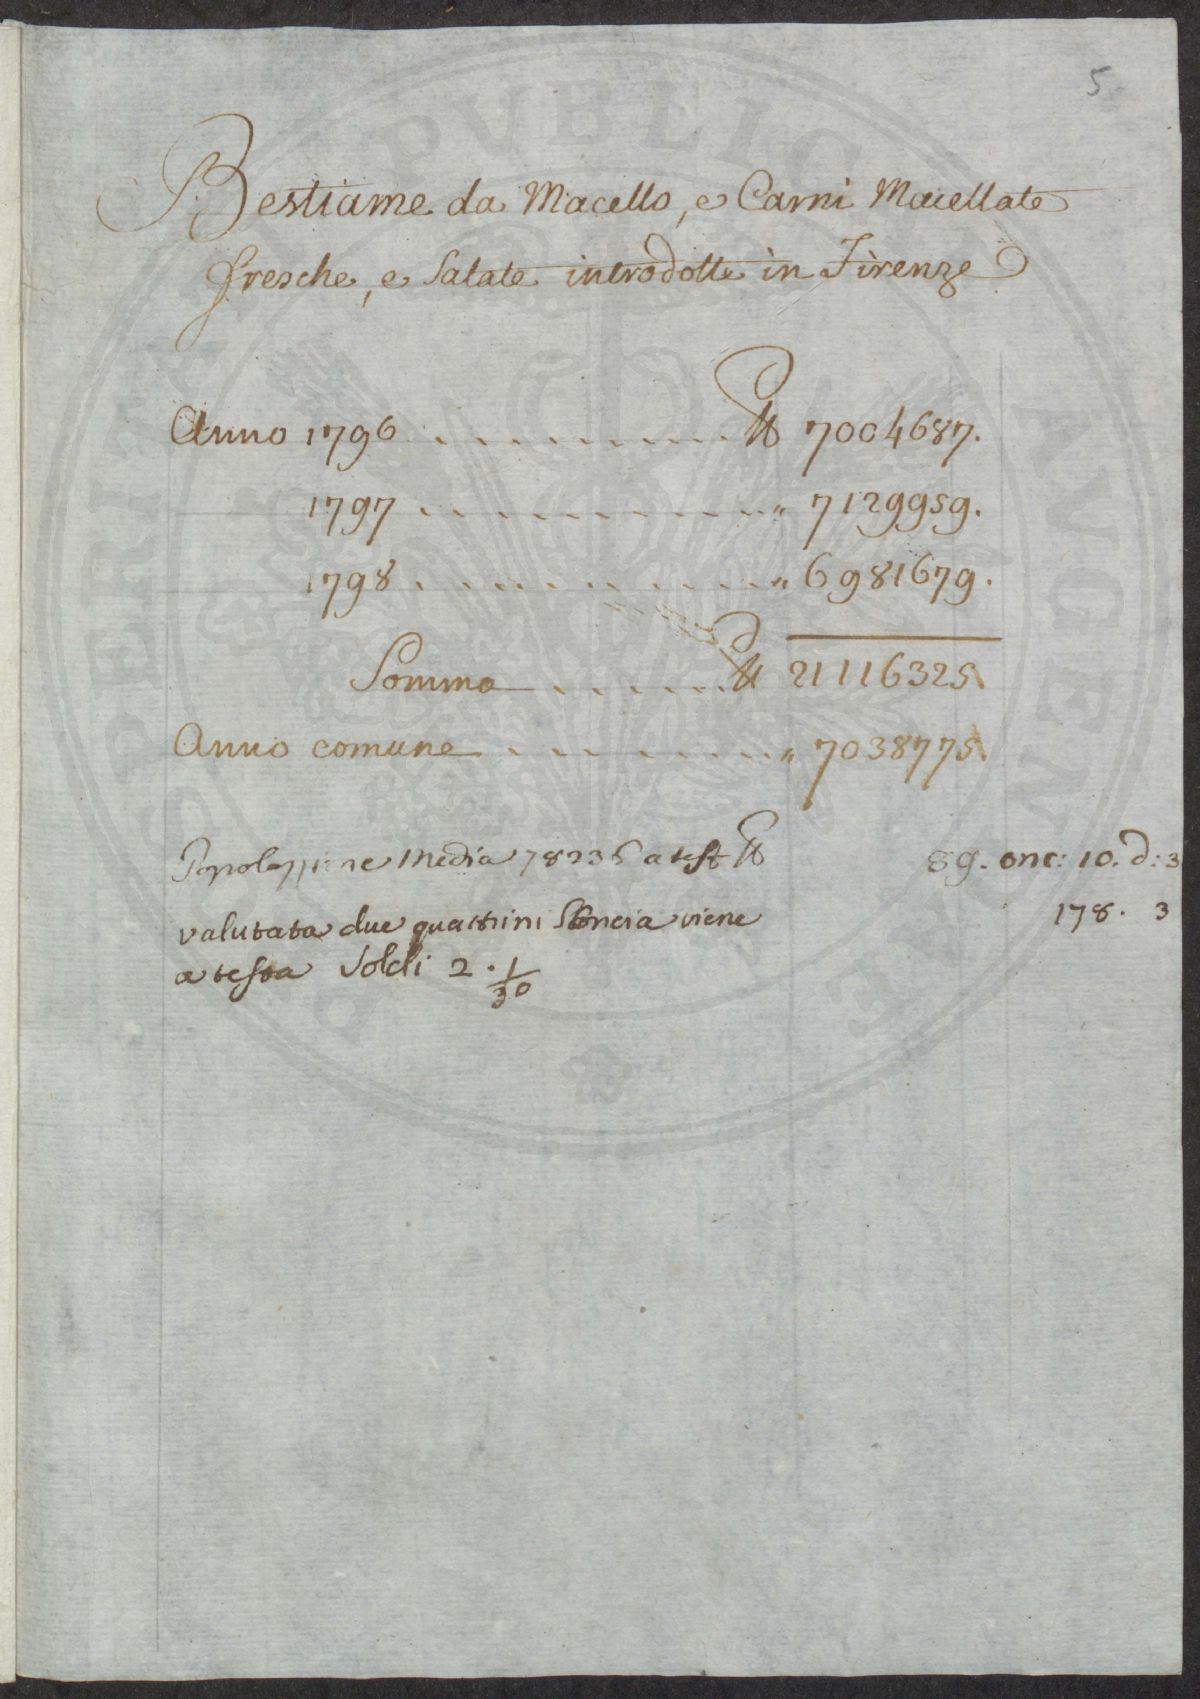 5.
Bestiame da Macello, e Carni Macellate
fresche, e Salate introdotte in Firenze
Anno 1796 . . . . . . . . . . ℔ 7004687.
1797 . . . . . . . . . . " 7129959.
1798 . . . . . . . . . . " 6981679.
Somma . . . . . . ℔ 21116325.
Anno comune . . . . . . . . " 7038775.
Popolazzione Media 78236 a test ℔ 89. onc: 10. d: 3
valutata due quattrini l'oncia viene 178. 3
a testa Soldi 2 . 1/30
PVBLICAE